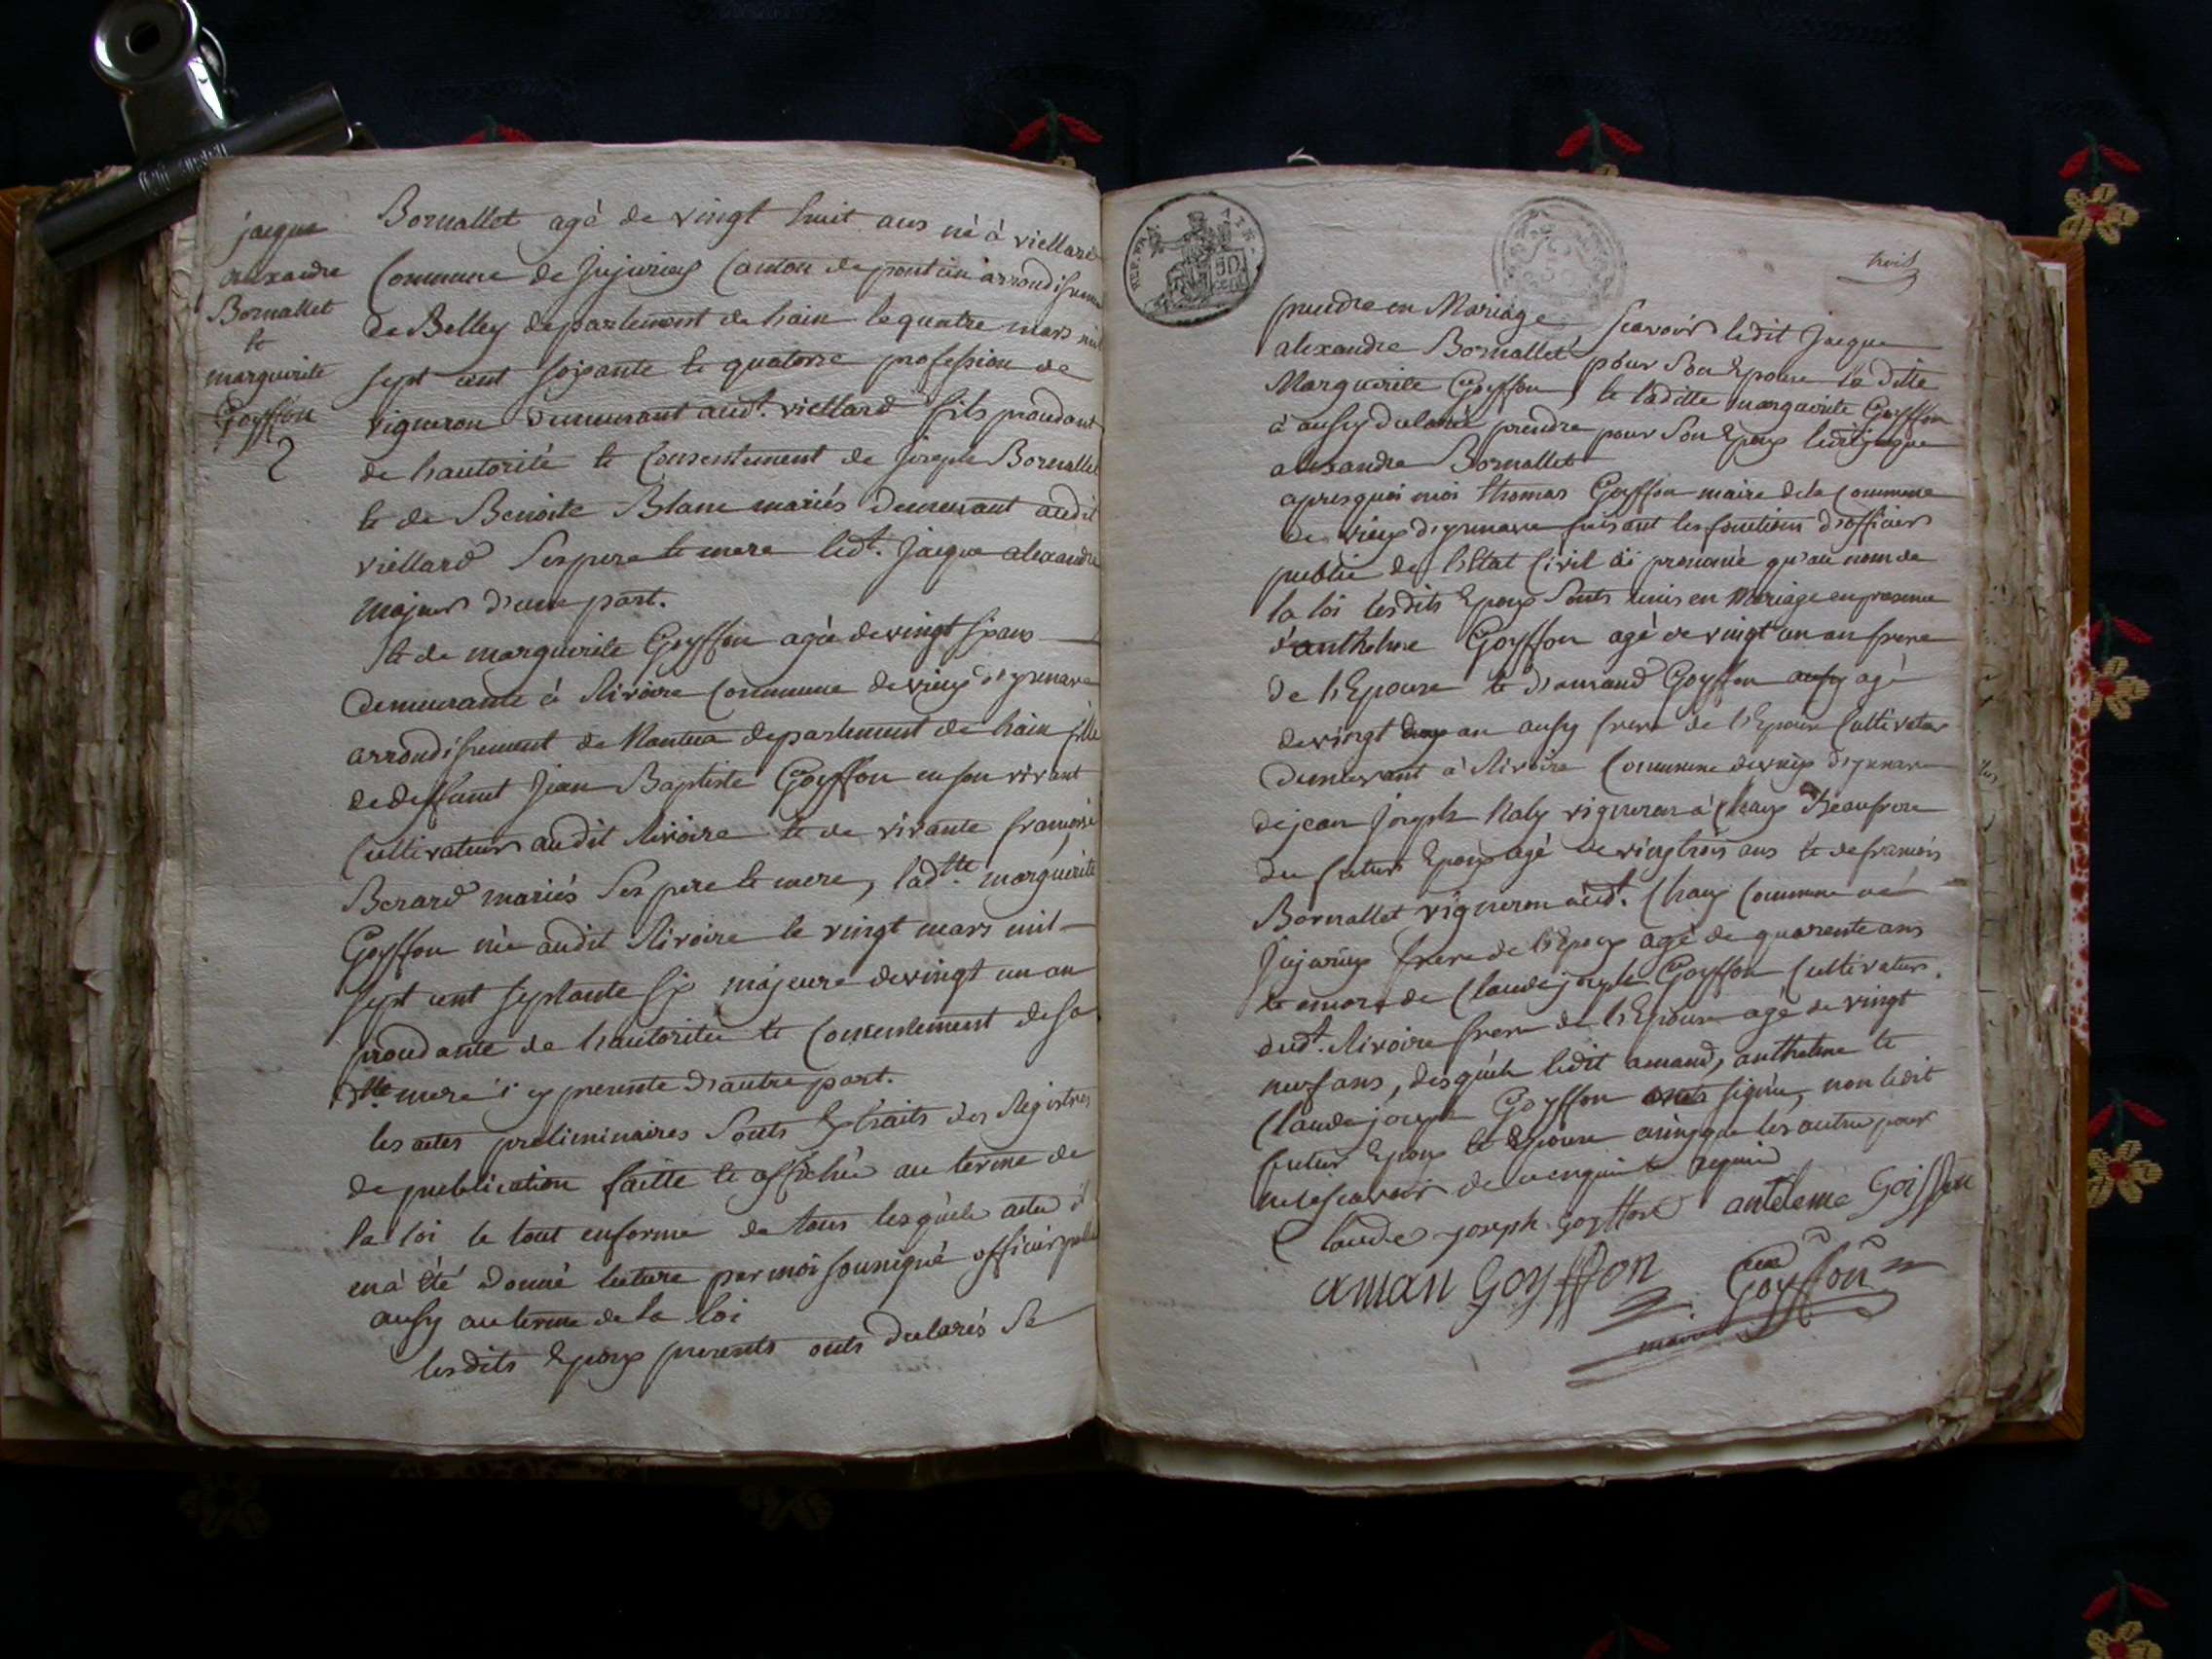 jacque
alexandre
Bornallet
te
marguerite
Goyffon
2
Bornallet agé de vingt huit ans né à viellard
Commune de Jujurieux Canton de pontin arrondissem
de Belley departement de hain le quatre mars mil
sept cent soixante te quatorse profession de
vigneron demeurant audt. viellard fils proudant
de hautorité te Consentement de Joseph Bornallet
te de Benoite Blanc mariés demeurant audit
viellard ses pere te mere ledt. Jacque alexandre
majeur d'une part.
te de marguerite Goyffon agée de vingt six ans
demeurante à Rivoire Commune de vieux d'yzenave
arrondissement de Nantua departement de hain fille
de deffunt Jean Baptiste Goyffon en son vivant
Cultivateur audit Rivoire te de vivante françoise
Berard mariés ses pere te mere, ladtte marguerite
Goyffon née audit Rivoire le vingt mars mil
sept cent septante six majeure de vingt un an
proudante de hautoritée te Consentement de sa
dtte mere i cy presente d'autre part.
les actes preliminaires sonts Extraits des Registres
de publication faitte te affichée au terme de
la loi le tout en forme de tous lesquels actes il
en à été donné lecture par moi sounigué officier publi
aussy au terme de la loi
lesdits Epoux presents onts declarés se
REP. FRA
50
cent
trois
prendre en Mariage scavoir ledit Jacque
alexandre Bornallet pour son Epouse la ditte
Marguerite Goyffon, te laditte marguerite Goyffon
à aussy declaré prendre pour son Epoux ledit jacque
alexandre Bornallet
apres quoi moi thomas Goyffon maire de la Commune
de vieux d'yzenave faisant les fonctions d'officier
public de l'Etat Civil ai prononcé qu'au nom de
la loi lesdits Epoux sonts unis en Mariage en presence
d'anthelme Goyffon agé de vingt un an frere
de l'Epouse te d'amand Goyffon aussy agé
de vingt deux an aussy frere de l'Epouse Cultivateur
demeurant à Rivoire Commune de vieux d'yzenave
de jean joseph Naly vigneron à Chaux Beaufrere
du futur Epoux agé de vingtrois ans te de francois
Bornallet vigneron audt. Chaux Commune de
Jujurieux frere de l'Epoux agé de quarente ans
te encore de Claude joseph Goyffon Cultivateur
audt. Rivoire frere de l'Epouse agé de vingt
neuf ans, desquels ledit amand, anthelme te
Claude joseph Goyffon onts signée, non ledit
futur Epoux te Epouse ainsy que les autres pour
ne le scavoir de ce enquis te requis
Claude joseph Goyffon anteleme Goiffon
aman Goyffon
Goyffon
maire